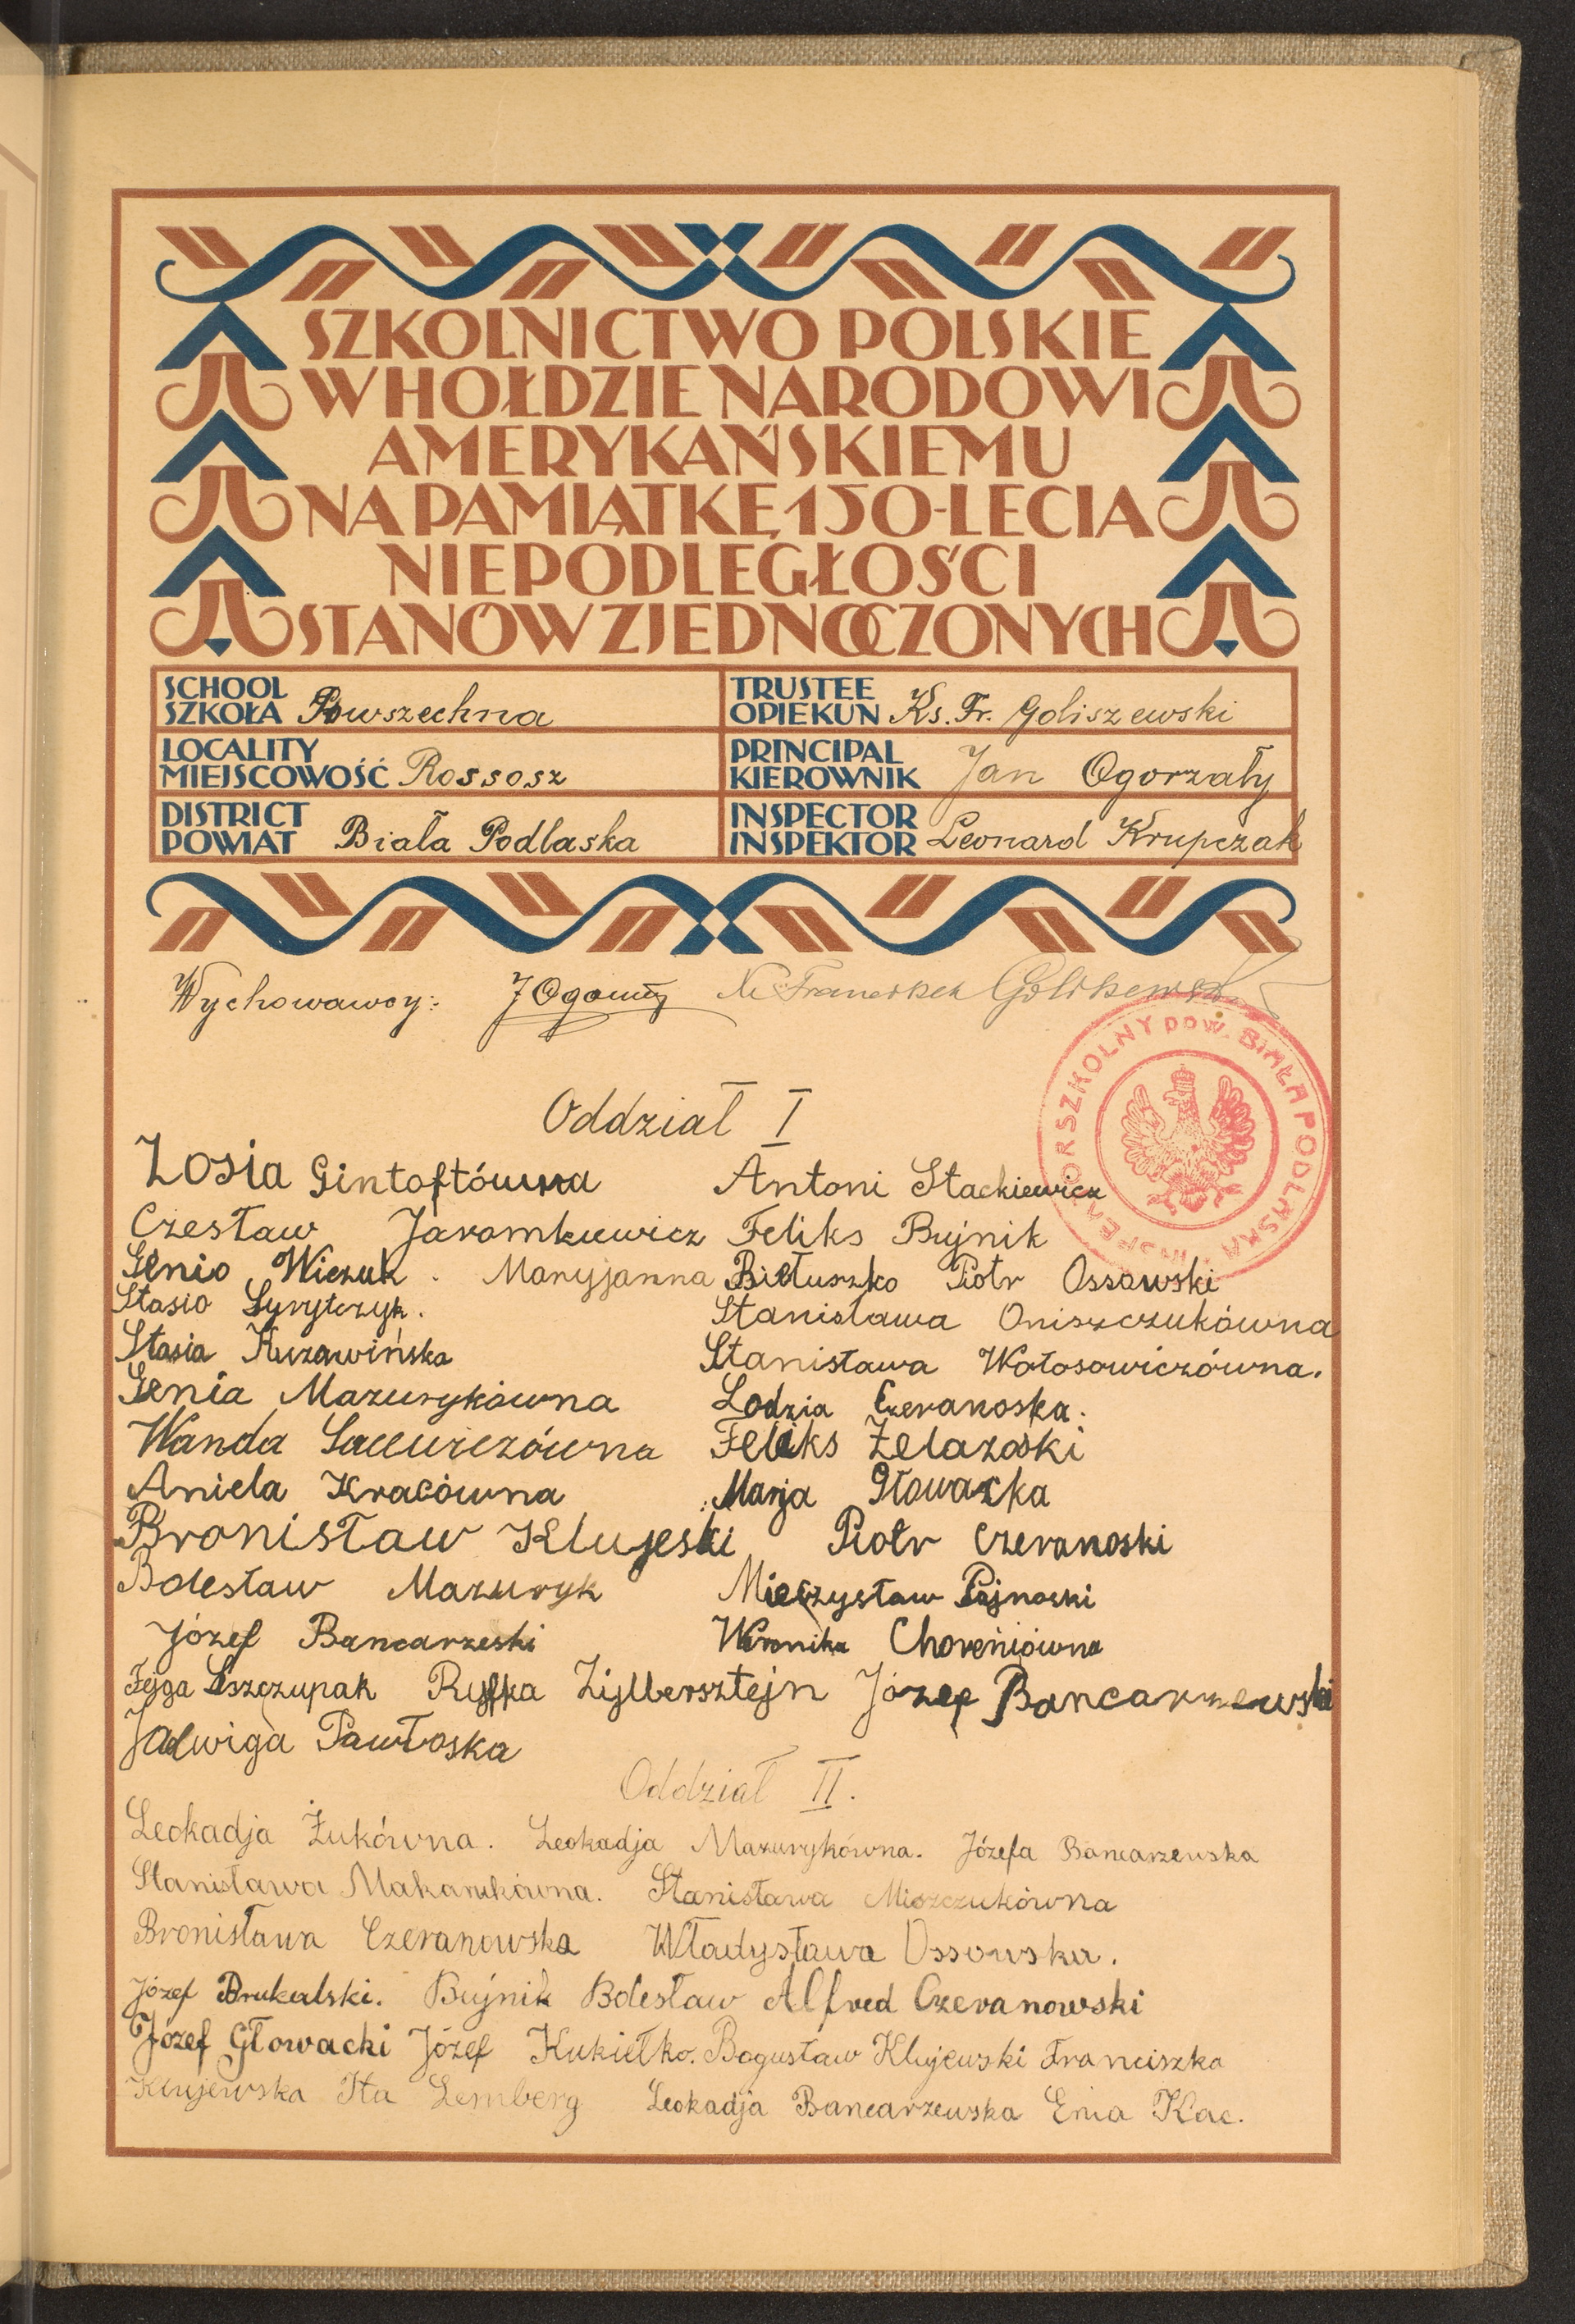 SZKOLNICTWO POLSKIE
W HOŁDZIE NARODOWI
AMERYKAŃSKIEMU
NA PAMIĄTKĘ 150-LECIA
NIEPODLEGŁOŚCI
STANÓW ZJEDNOCZONYCH
SCHOOL
SZKOŁA Powszechna
TRUSTEE
OPIEKUN Ks. Fr. Goliszewski
LOCALITY
MIEJSCOWOŚĆ Rossosz
PRINCIPAL
KIEROWNIK Jan Ogorzały
DISTRICT
POWIAT Biała Podlaska
INSPECTOR
INSPEKTOR Leonard Krupczak
Wychowawcy: Franciszek
INSPEKTOR SZKOLNY POW. BIAŁA PODLASKA
Oddział I
Zosia Gintoftówna Antoni Stackiewicz
Czesław Jaromkiewicz Feliks Bujnik
Genio Wiczuk. Maryjanna Biełuszko Piotr Ossowski
Stasio
Stanisława Oniszczukówna
Stasia Kuzawińska Stanisława Wołosowiczówna.
Genia Mazurykówna Lodzia Czeranoska.
Wanda Feliks Żelazoski
Aniela Kracówna Marja Głowacka
Bronisław Klujeski Piotr Czeranoski
Bolesław Mazuryk Mieczysław Pajnoski
Józef Bancarzeski Weronika Choreńiówna
Fejga Szczupak Ryfka Zijlbersztejn Józef Bancarzewski
Jadwiga Pawłoska
Oddział II.
Leokadja Żukówna. Leokadja Mazurykówna. Józefa Bancarzewska
Stanisława Makarukówna. Stanisława Miszczukówna
Bronisława Czeranowska Władysława Ossowska.
Józef Brukalski. Bujnik Bolesław Alfred Czeranowski
Józef Głowacki Józef Kukiełko. Bogusław Klujewski Franciszka
Klujewska Ita Lemberg Leokadja Bancarzewska Enia Kac.